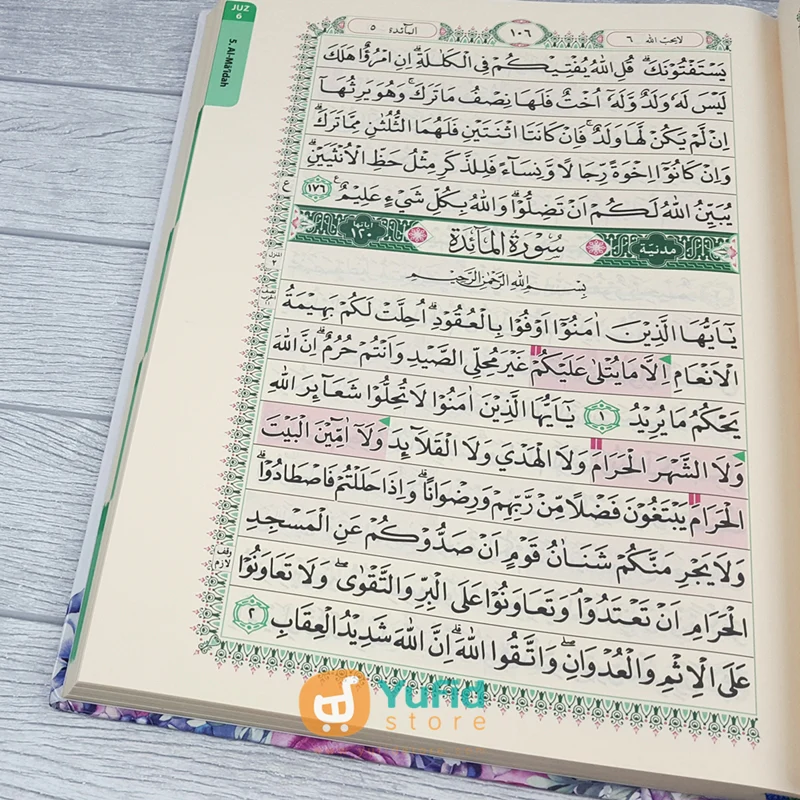 JUZ
6
5. Al-Mā'idah
لا يحب الله ٦
١٠٦
المائدة ٥
يَسْتَفْتُوْنَكَۗ قُلِ اللّٰهُ يُفْتِيْكُمْ فِى الْكَلٰلَةِۗ اِنِ امْرُؤٌا هَلَكَ
لَيْسَ لَهٗ وَلَدٌ وَّلَهٗٓ اُخْتٌ فَلَهَا نِصْفُ مَا تَرَكَۚ وَهُوَ يَرِثُهَآ
اِنْ لَّمْ يَكُنْ لَّهَا وَلَدٌۚ فَاِنْ كَانَتَا اثْنَتَيْنِ فَلَهُمَا الثُّلُثٰنِ مِمَّا تَرَكَۗ
وَاِنْ كَانُوْٓا اِخْوَةً رِّجَالًا وَّنِسَاۤءً فَلِلذَّكَرِ مِثْلُ حَظِّ الْاُنْثَيَيْنِۗ
يُبَيِّنُ اللّٰهُ لَكُمْ اَنْ تَضِلُّوْاۗ وَاللّٰهُ بِكُلِّ شَيْءٍ عَلِيْمٌ ١٧٦
مدنية
سورة المائدة
اياتها ١٢٠
بِسْمِ اللّٰهِ الرَّحْمٰنِ الرَّحِيْمِ
يٰٓاَيُّهَا الَّذِيْنَ اٰمَنُوْٓا اَوْفُوْا بِالْعُقُوْدِۗ اُحِلَّتْ لَكُمْ بَهِيْمَةُ
الْاَنْعَامِ اِلَّا مَا يُتْلٰى عَلَيْكُمْ غَيْرَ مُحِلِّى الصَّيْدِ وَاَنْتُمْ حُرُمٌۗ اِنَّ اللّٰهَ
يَحْكُمُ مَا يُرِيْدُ ١ يٰٓاَيُّهَا الَّذِيْنَ اٰمَنُوْا لَا تُحِلُّوْا شَعَاۤىِٕرَ اللّٰهِ
وَلَا الشَّهْرَ الْحَرَامَ وَلَا الْهَدْيَ وَلَا الْقَلَاۤىِٕدَ وَلَآ اٰۤمِّيْنَ الْبَيْتَ
الْحَرَامَ يَبْتَغُوْنَ فَضْلًا مِّنْ رَّبِّهِمْ وَرِضْوَانًاۗ وَاِذَا حَلَلْتُمْ فَاصْطَادُوْاۗ
وَلَا يَجْرِمَنَّكُمْ شَنَاٰنُ قَوْمٍ اَنْ صَدُّوْكُمْ عَنِ الْمَسْجِدِ
الْحَرَامِ اَنْ تَعْتَدُوْاۘ وَتَعَاوَنُوْا عَلَى الْبِرِّ وَالتَّقْوٰىۖ وَلَا تَعَاوَنُوْا
عَلَى الْاِثْمِ وَالْعُدْوَانِۖ وَاتَّقُوا اللّٰهَۗ اِنَّ اللّٰهَ شَدِيْدُ الْعِقَابِ ٢
Yufid
store